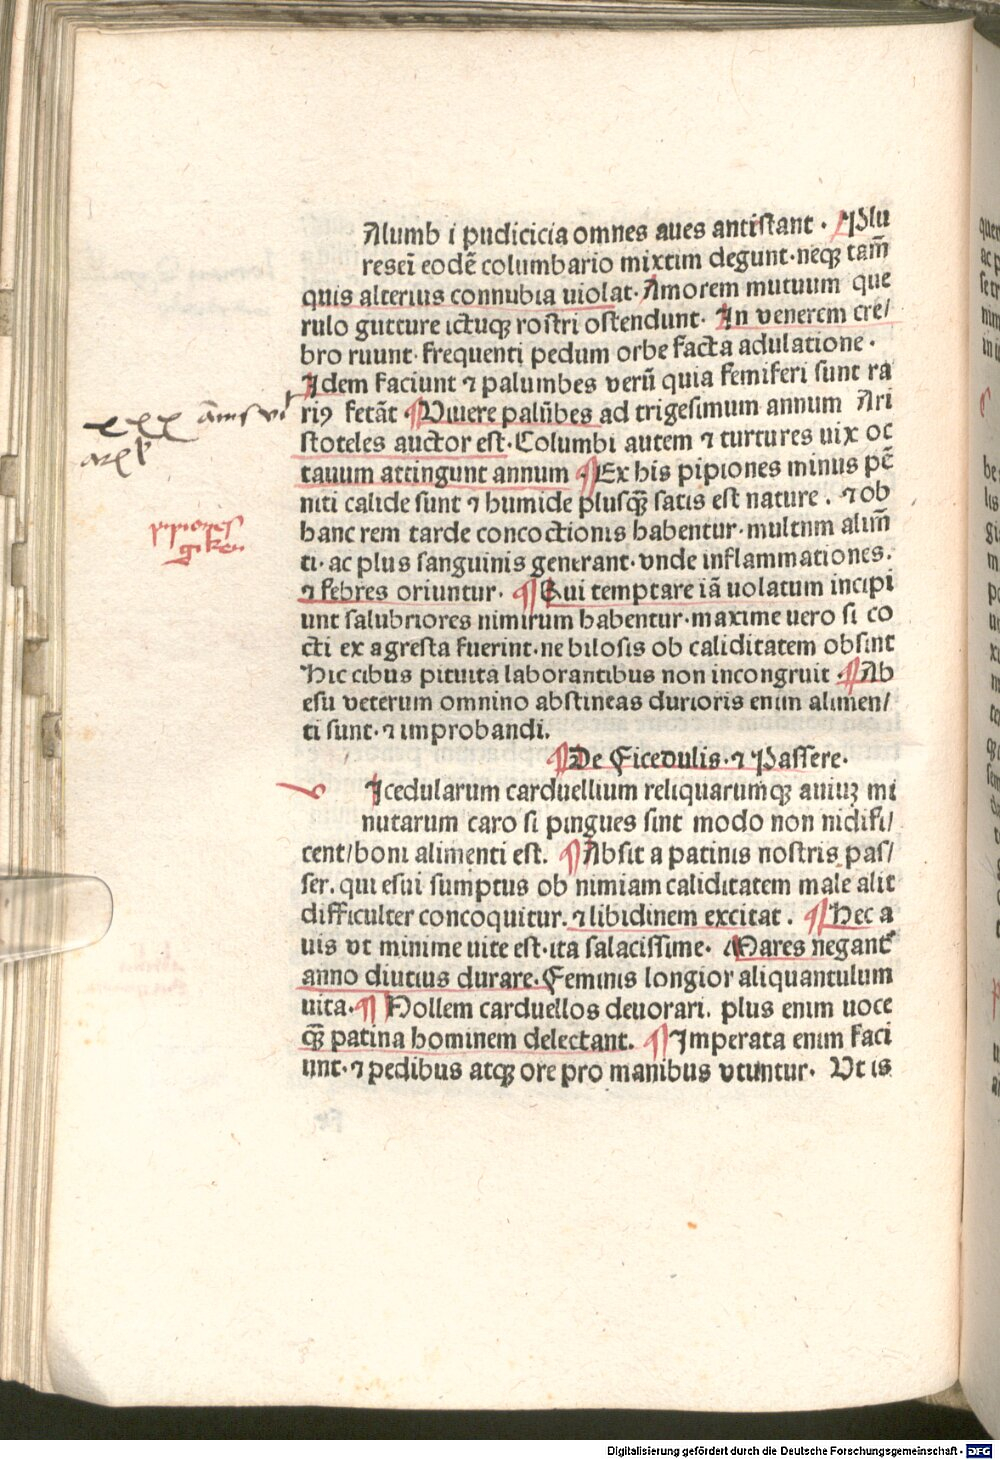 Alumb i pudicicia omnes aues antistant · Plu
reseī eodē columbario mixtim degunt · neqꝫ tam̄
quis alterius connubia uiolat · Amorem mutuum que
rulo gutture ictuqꝫ rostri ostendunt · In venerem cre/
bro ruunt · frequenti pedum orbe facta adulatione ·
Idem faciunt ⁊ palumbes verū quia femiferi sunt ra
riꝰ fetāt ¶ Viuere palūbes ad trigesimum annum Ari
stoteles auctor est · Columbi autem ⁊ turtures uix oc
tauum attingunt annum · ¶ Ex his pipiones minus pē
niti calide sunt ⁊ humide plusqꝫ̄ satis est nature . ⁊ ob
hanc rem tarde concoctionis habentur · multum alim̄
ti · ac plus sanguinis generant · vnde inflammationes .
⁊ febres oriuntur . ¶ Qui temptare iā uolatum incipi
unt salubriores nimirum habentur · maxime uero si co
cti ex agresta fuerint · ne bilosis ob caliditatem obsint
Hic cibus pituita laborantibus non incongruit · ¶ Ab
esu veterum omnino abstineas durioris enim alimen/
ti sunt · ⁊ improbandi .
¶ De Ficedulis · ⁊ Passere ·
Icedularum carduellium reliquarumqꝫ auiuꝫ mi
nutarum caro si pingues sint modo non nidifi/
cent/boni alimenti est . ¶ Absit a patinis nostris pas/
ser . qui esui sumptus ob nimiam caliditatem male alit
difficulter concoquitur . ⁊ libidinem excitat . ¶ Hec a
uis vt minime uite est · ita salacissime · Mares negant
anno diutius durare . Feminis longior aliquantulum
uita · ¶ Nollem carduellos deuorari . plus enim uoce
qꝫ̄ patina hominem delectant . ¶ Imperata enim faci
unt · ⁊ pedibus atqꝫ ore pro manibus vtuntur · Vt is
xxx
pipiones
Digitalisierung gefördert durch die Deutsche Forschungsgemeinschaft - DFG